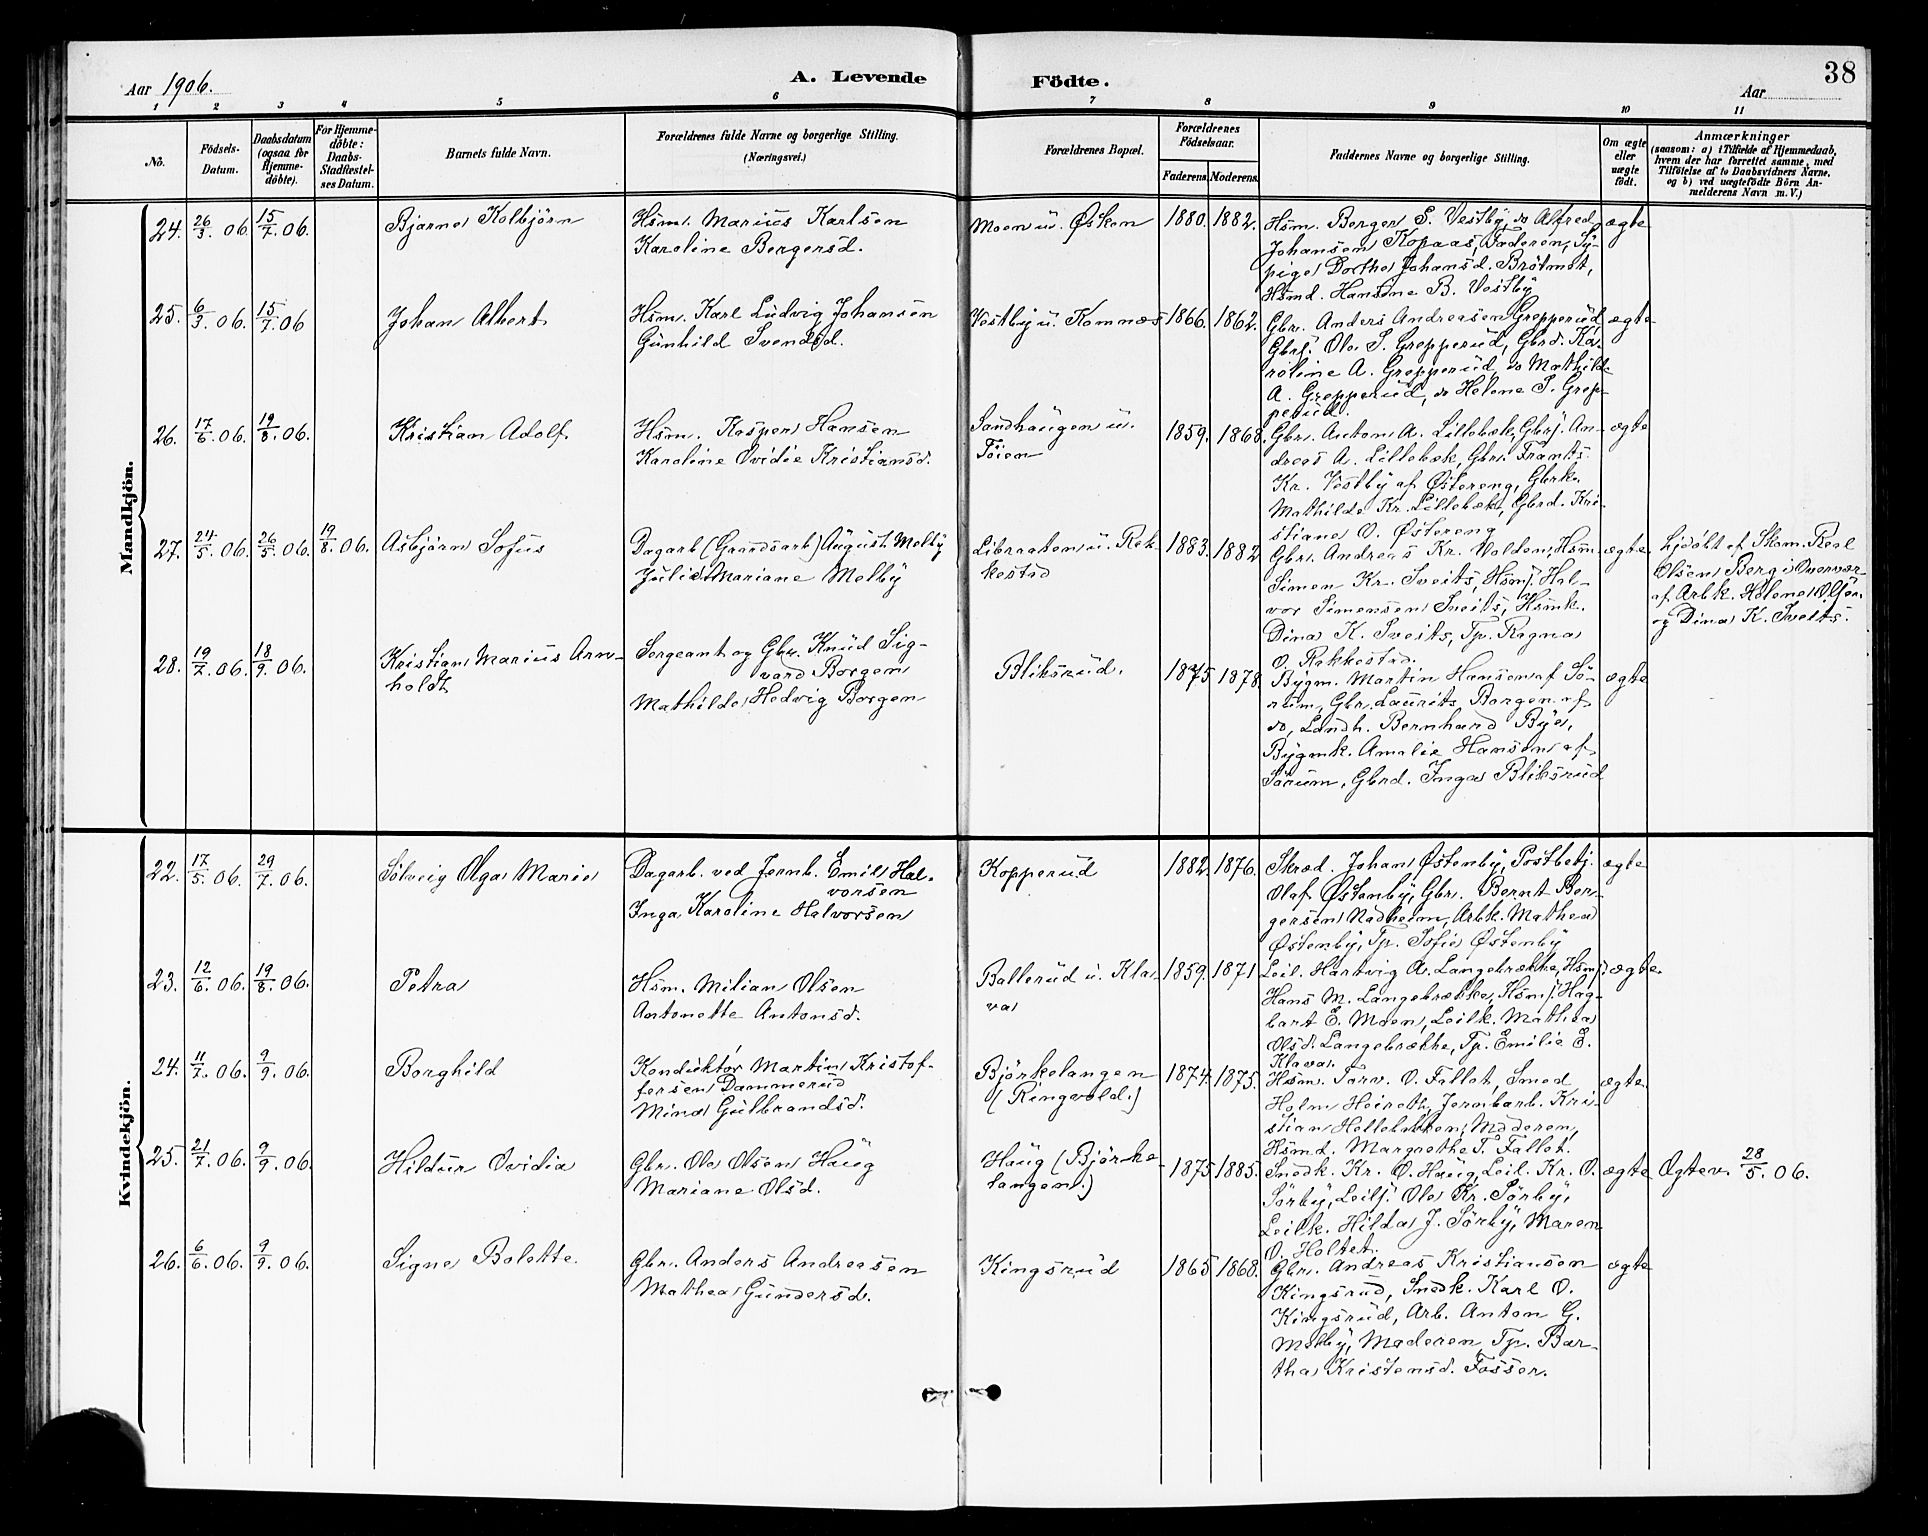 Aar 1906.
A. Levende
Födte.
Aar
38
1 2 3 4 5 6 7 8 9 10 11
No.
Födsels-
Datum.
Daabsdatum
(ogsaa for
Hjemme-
döbte).
For Hjemme-
döbte:
Daabs-
Stadfæstel-
ses Datum.
Barnets fulde Navn.
Forældrenes fulde Navne og borgerlige Stilling.
(Næringsvei.)
Forældrenes Bopæl.
Forældrenes
Födselsaar.
Faderens. Moderens.
Faddernes Navne og borgerlige Stilling.
Om ægte
eller
uægte
födt.
Anmærkninger
(saasom: a) i Tilfælde af Hjemmedaab,
hvem der har forrettet samme, med
Tilföielse af to Daabsvidners Navne,
og b) ved uægtefödte Börn An-
melderens Navn m. V.)
Mandkjön.
24. 26/3 06. 15/7 06.
Bjarne Kolbjörn
Hsm. Marius Karlsen
Karoline Bergersd.
Moen u. Øsken
1880. 1882.
Hsm. Berger S. Vestby, do Alfred
Johansen Kopaas, Faderen, Sy-
pige Dorthe Johansd. Bråtmot,
Hsmd. Hansine B. Vestby
ægte
25. 6/3 06. 15/7 06
Johan Albert
Hsm. Karl Ludvig Johansen
Gunhild Svendsd.
Vestby u. Komnæs
1866. 1862.
Gbr. Anders Andreasen Grepperud
Gbrs. Ole S. Grepperud, Gbrd. Ka-
roline A. Grepperud, do Mathilde
A. Grepperud, do Helene S. Grep-
perud.
ægte
26. 17/6 06. 19/8 06.
Kristian Adolf.
Hsm. Kasper Hansen
Karoline Ovidie Kristiansd.
Sandhaugen u.
Töien
1859. 1868.
Gbr. Anton A. Lillebæk, Gbrs. An-
dreas A. Lillebæk, Gbr. Frants
Kr. Vestby af Østereng, Gbrk.
Mathilde Kr. Lillebæk, Gbrd. Kri-
stiane O. Østereng
ægte
27. 24/5 06. 26/5 06. 19/8 06.
Asbjörn Sofus
Dagarb. (Gaardsarb) August Melby
Julie Mariane Melby
Libraaten u. Rak-
kestad
1883. 1882
Gbr. Andreas Kr. Volden, Hsm.
Simen Kr. Sveits, Hsms. Hal-
vor Simensen Sveits, Hsmk.
Dina K. Sveits, Tp. Ragna
O. Rakkestad.
ægte
Hjdöbt af Skom. Roal
Olsen Berg i Overvær
af Arbk. Helene Olsen
og Dina K. Sveits.
28. 19/7 06. 18/9 06.
Kristian Marius Arn-
holdt
Sergeant og Gbr. Knud Sig-
vard Borgen
Mathilde Hedvig Borgen
Bliksrud.
1875 1878.
Bygm. Martin Hansen af Sö-
rum, Gbr. Laurits Borgen af
do, Landh. Bernhard Bye,
Bygmk. Amalie Hansen af
Sörum, Gbrd. Inga Bliksrud
ægte
Kvindekjön.
22. 17/5 06. 29/7 06.
Solveig Olga Marie
Dagarb. ved Jernb. Emil Hal-
vorsen
Inga Karoline Halvorsen
Kopperud
1882. 1876.
Skræd. Johan Østenby, Postbetj.
Olaf Østenby, Gbr. Bernt Ber-
gersen Nadheim, Arbk. Mathea
Østenby, Tp. Sofie Østenby
ægte
23. 12/6 06. 19/8 06.
Petra
Hsm. Milian Olsen
Antonette Antonsd.
Ballerud u. Kla-
va
1859. 1871
Leil. Hartvig A. Langebrække, Hsms.
Hans M. Langebrække, Hsms. Hag-
bart E. Moen, Leilk. Mathea
Olsd. Langebrække, Tp. Emilie E.
Klava.
ægte.
24. 11/7 06. 9/9 06.
Borghild
Konduktör Martin Kristof-
fersen Dammerud
Mina Gulbrandsd.
Björkelangen
(Ringvold.)
1874. 1875.
Hsm. Tarv. O. Fallet, Smed
Holm Heireth, Jernbarb. Kri-
stian Hellebækken, Moderen,
Hsmd. Margrethe T. Fallet.
ægte.
25. 21/7 06. 9/9 06.
Hildur Ovidia
Gbr. Ole Olsen Haug
Mariane Olsd.
Haug (Björke-
langen.)
1875 1885.
Snedk. Kr. O. Haug, Leil. Kr. O.
Sörby, Leils. Ole Kr. Sörby,
Leilk. Hilda J. Sörby, Maren
O. Holtet.
ægte
Ægtev. 28/5 06.
26. 6/6 06. 9/9 06.
Signe Bolette.
Gbr. Anders Andreasen
Mathea Gundersd.
Kingsrud
1865 1868.
Gbr. Andreas Kristiansen
Kingsrud, Snedk. Karl O.
Kingsrud, Arb. Anton G.
Melby, Moderen, Tp. Bar-
tha Kristensd. Fosser.
ægte